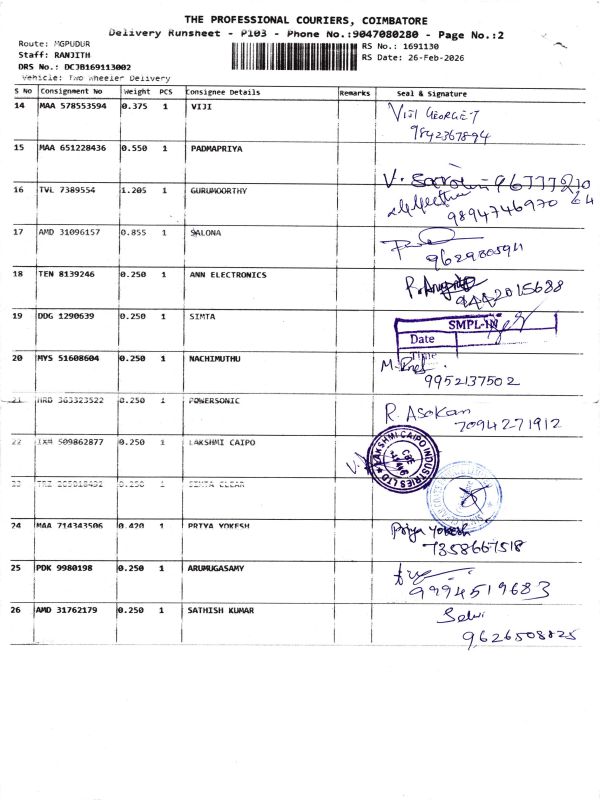 THE PROFESSIONAL COURIERS, COIMBATORE
Delivery Runsheet - P103 - Phone No.:9047080280 - Page No.:2
Route: MGPUDUR
RS No.: 1691130
Staff: RANJITH
RS Date: 26-Feb-2026
DRS No.: DCJB169113002
Vehicle: Two Wheeler Delivery
S No Consignment No Weight PCS Consignee Details Remarks Seal & Signature
14 MAA 578553594 0.375 1 VIJI
VIJI GEORGE T
9842367894
15 MAA 651228436 0.550 1 PADMAPRIYA
16 TVL 7389554 1.205 1 GURUMOORTHY
9894746970
17 AMD 31096157 0.855 1 SALONA
9629805911
18 TEN 8139246 0.250 1 ANN ELECTRONICS
9442015688
19 DDG 1290639 0.250 1 SIMTA
SMPL-IN
Date
Time
20 MYS 51608604 0.250 1 NACHIMUTHU
9952137502
21 HRD 363323522 0.250 1 POWERSONIC
R. Asokan
7094271912
22 509862877 0.250 1 LAKSHMI CAIPO
LAKSHMI CAIPO INDUSTRIES LTD
23 0.250 1 SIMTA
24 MAA 714343506 0.420 1 PRIYA YOKESH
Priya Yokesh
7358667518
25 PDK 9980198 0.250 1 ARUMUGASAMY
9994519683
26 AMD 31762179 0.250 1 SATHISH KUMAR
Selvi
9626508825